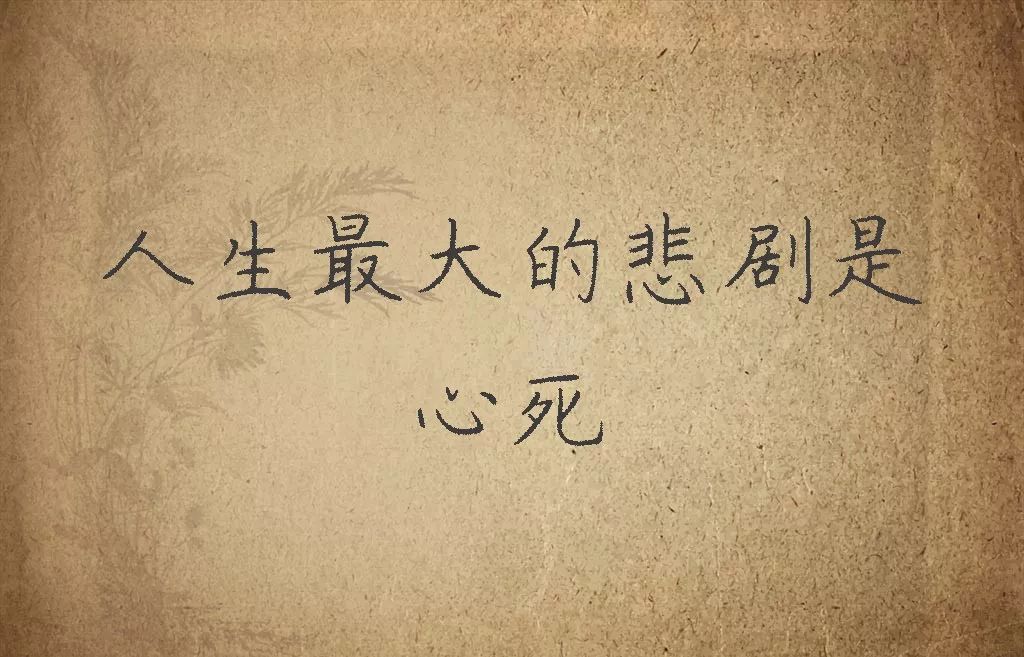 人生最大的悲剧是
心死